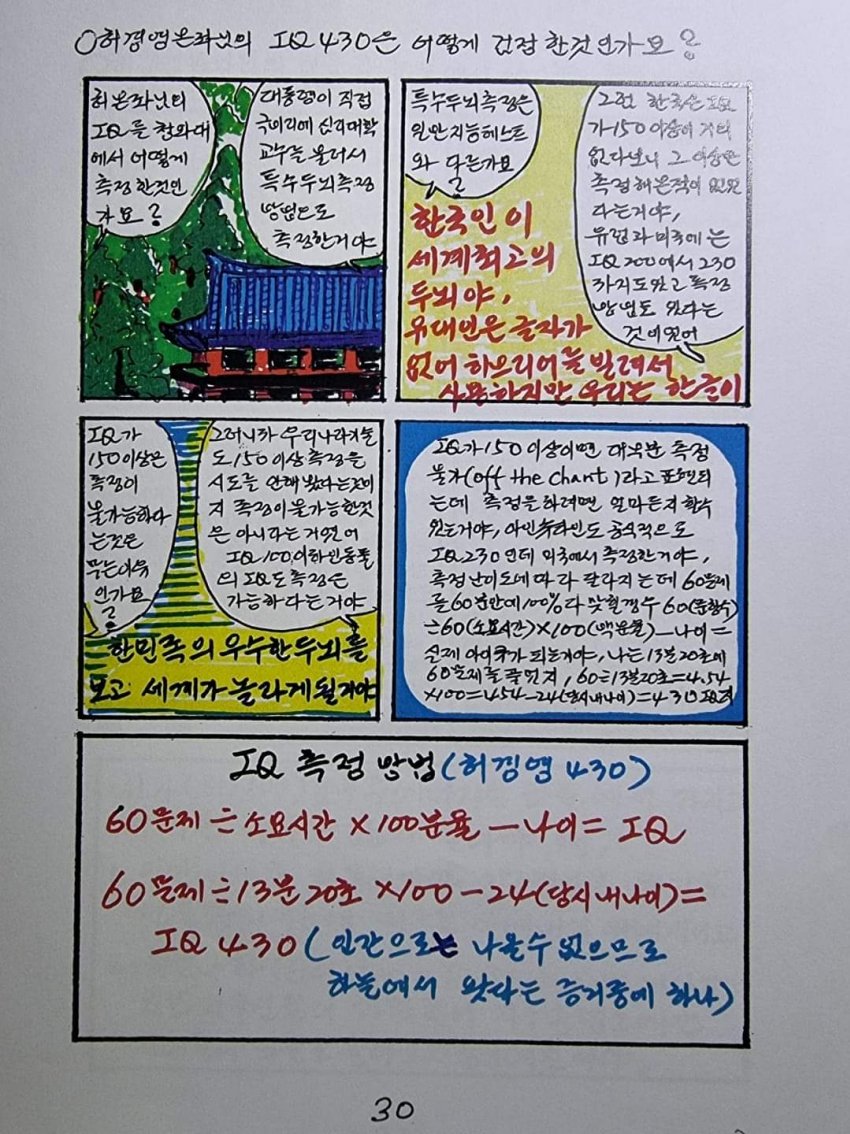 ○허경영은좌님의 IQ 430은 어떻게 검점 한것인가요?
허본좌님의
IQ를 청와대
에서 어떻게
측정한것인
가요?
대통령이 직접
극비리에 심리대학
교수를 불러서
특수두뇌측정
방법으로
측정한거야
특수두뇌측정은
일반지능테스트
와 다른가요
?
그럼 한국은 IQ
가150이상이 거의
없다보니 그 이상은
측정해본적이 없었
다는거야,
유럽과미국에는
IQ 200에서 230
까지도있고 측정
방법도 있다는
것이었어
한국인이
세계최고의
두뇌야,
유대인은 글자가
없어 히브리어를 빌려서
사용하지만 우리는 한글이
IQ가
150이상은
측정이
불가능하다
는것은
무슨이유
인가요
?
그러니까 우리나라기술
도150이상측정을
시도를 안해봤다는것이
지 측정이불가능한것
은 아니라는거였어
IQ100이하인동물
의 IQ도측정은
가능하다는거야
한민족의우수한두뇌를
보고 세계가 놀라게될거야
IQ가150이상이면 대부분 측정
불가(off the chart)라고표현되
는데 측정을하려면 얼마든지할수
있는거야, 아인슈타인도 공식적으로
IQ230인데 외국에서측정한거야,
측정난이도에따라 달라지는데 60문제
를60분안에100%다맞힐경우 60(문항수)
÷60(소요시간)×100(백분율)-나이=
실제 아이큐가 되는거야, 나는13분20초에
60문제를풀었지, 60÷13분20초=4.54
×100=454-24(당시내나이)=430 IQ지
IQ 측정 방법(허경영 430)
60문제÷소요시간 ×100분율 -나이= IQ
60문제÷13분20초 ×100-24(당시내나이)=
IQ 430(인간으로는 나올수 없으므로
하늘에서 왔다는 증거중에 하나)
30